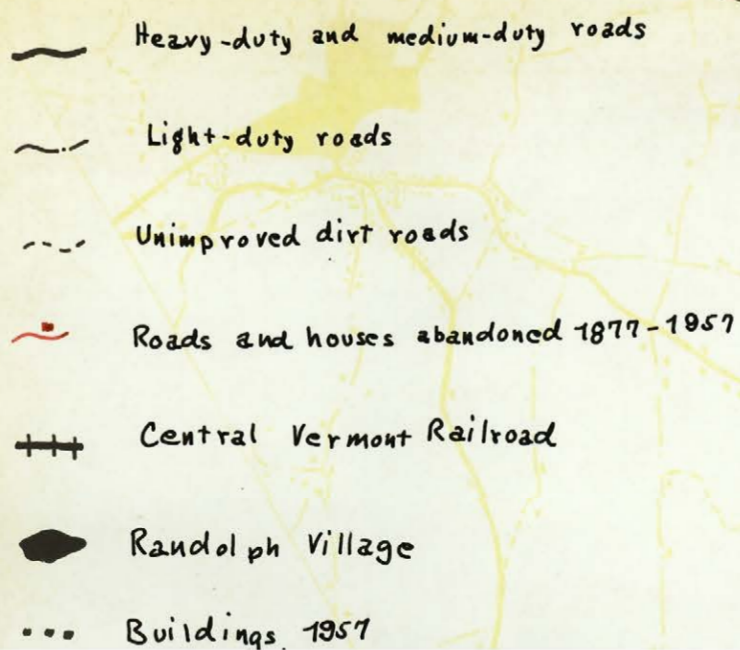 Heavy-duty and medium-duty roads
Light-duty roads
Unimproved dirt roads
Roads and houses abandoned 1877-1957
Central Vermont Railroad
Randolph Village
Buildings, 1957